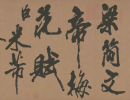 梁簡文
帝梅
花賦
臣米芾